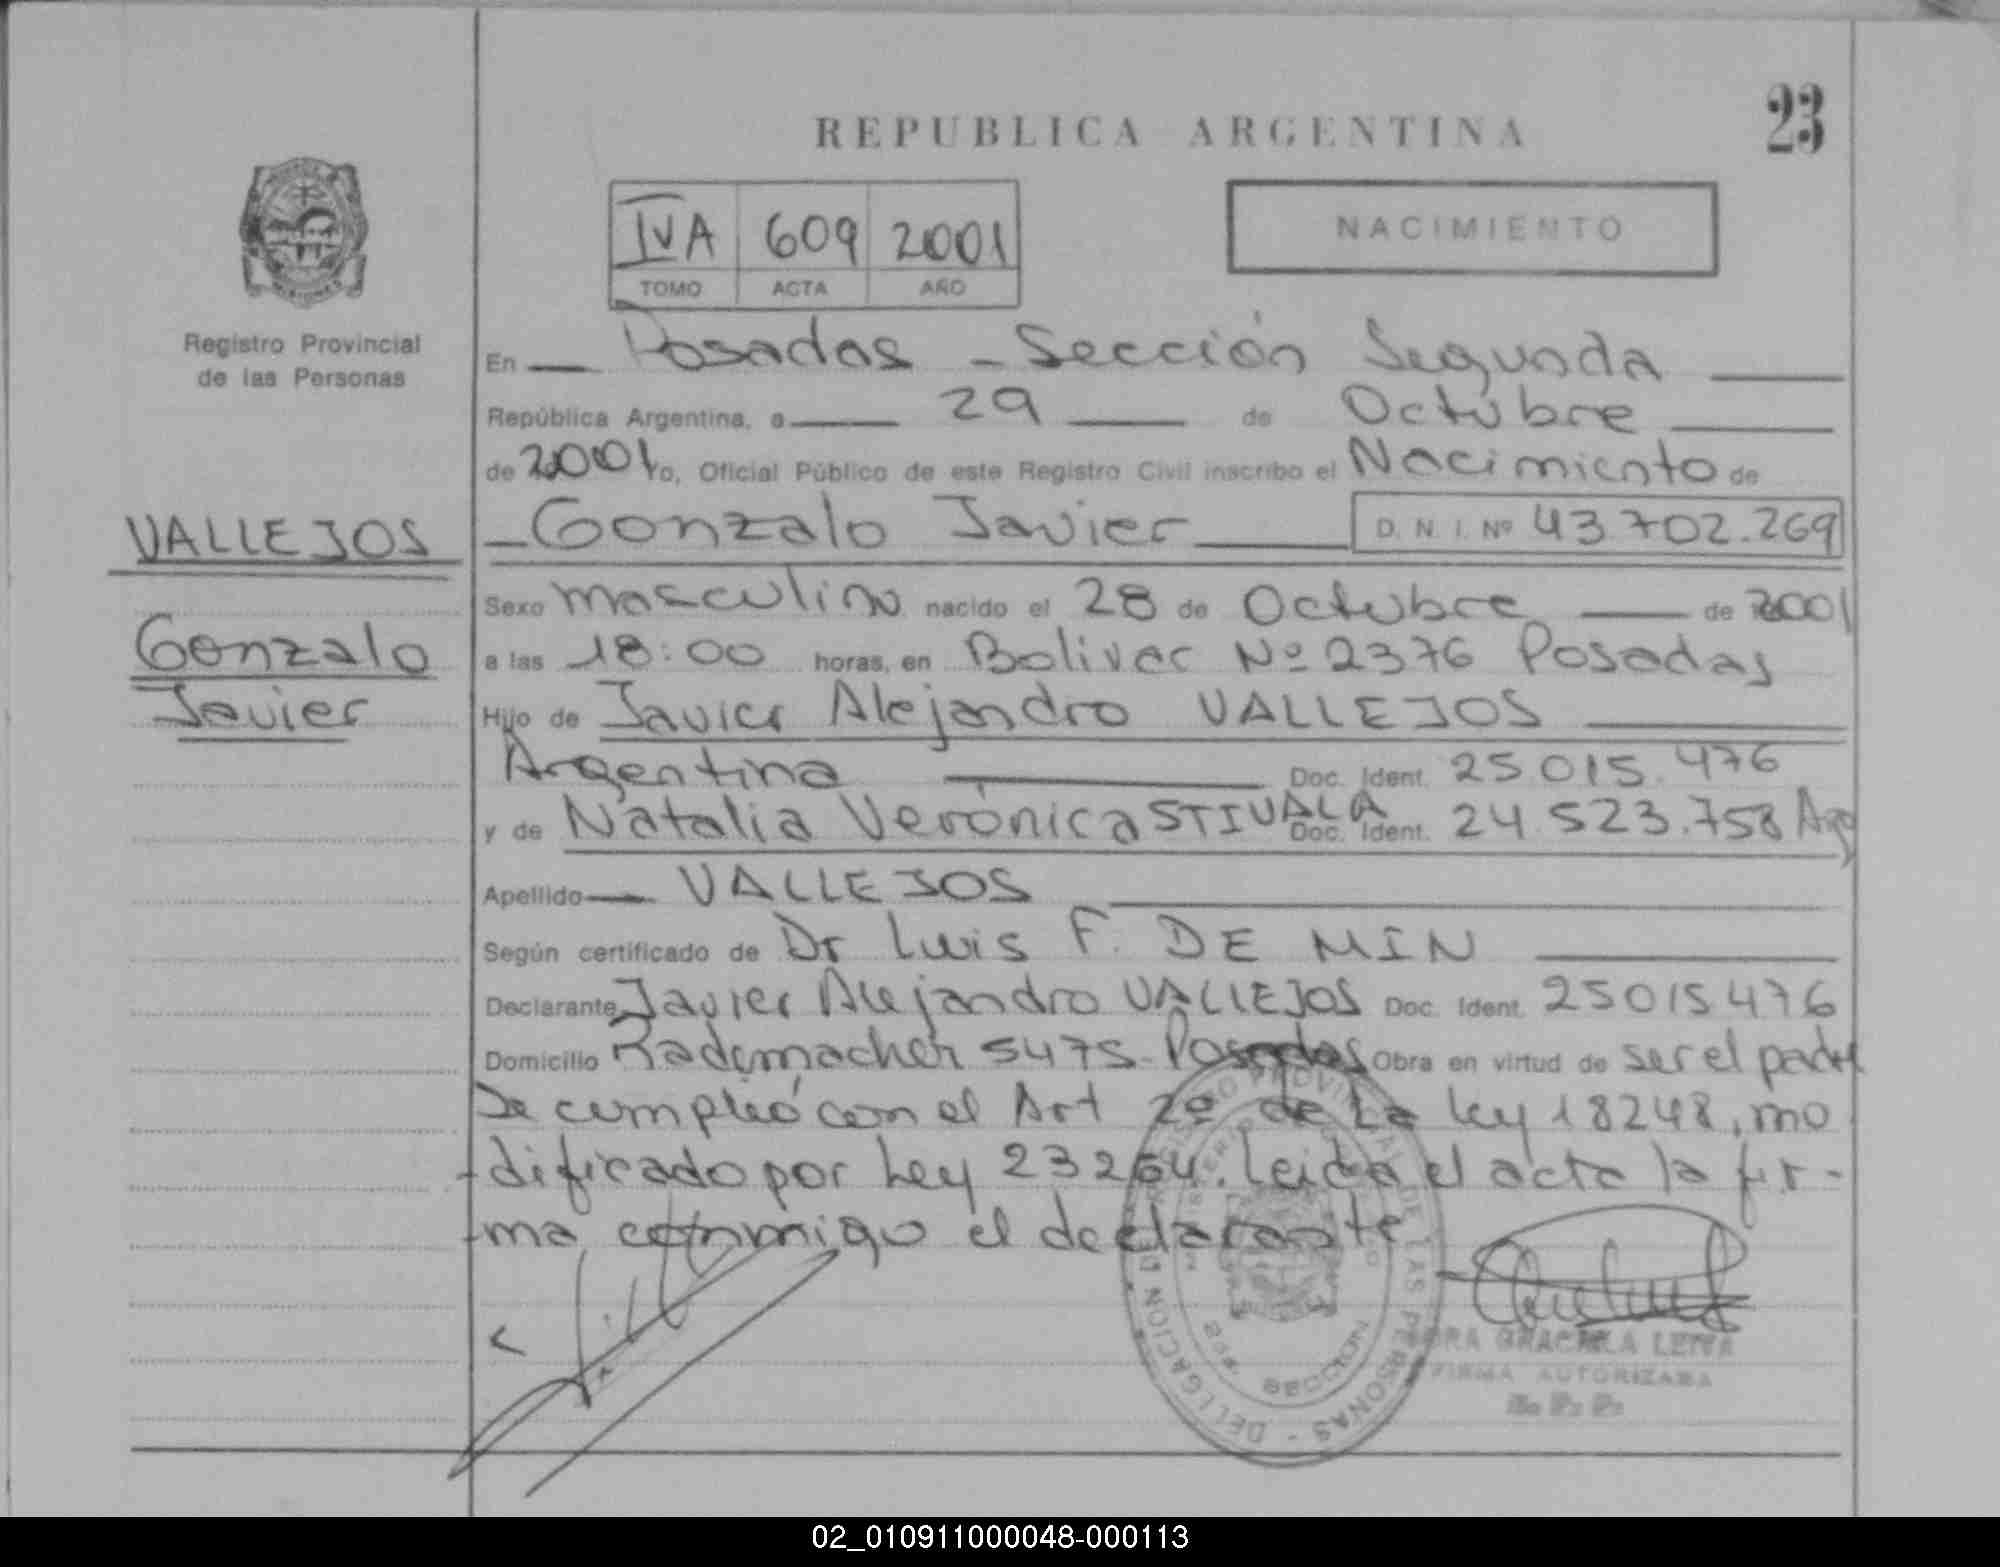 23
REPUBLICA ARGENTINA
IVA 609 2001
TOMO ACTA AÑO
NACIMIENTO
MISIONES
Registro Provincial
de las Personas
VALLEJOS
Gonzalo
Javier
En Posadas - Sección Segunda
República Argentina, a 29 de Octubre
de 2001 Yo, Oficial Público de este Registro Civil inscribo el Nacimiento de
Gonzalo Javier D. N. I. Nº 43.702.269
Sexo masculino nacido el 28 de Octubre de 2001
a las 18:00 horas, en Bolivar Nº 2376 Posadas
Hijo de Javier Alejandro VALLEJOS
Argentina Doc. Ident. 25.015.476
y de Natalia Verónica STIVALA Doc. Ident. 24.523.758 Arg
Apellido VALLEJOS
Según certificado de Dr Luis F. DE MIN
Declarante Javier Alejandro VALLEJOS Doc. Ident. 25015476
Domicilio Rademacher 5475 - Posadas Obra en virtud de ser el padre
Se cumplió con el Art 2º de La Ley 18248, mo
dificado por Ley 23264. Leida el acta la fir-
ma conmigo el declarante
REGISTRO PROVINCIAL DE LAS PERSONAS - DELEGACION
2da. SECCION
GRACIELA LEIVA
FIRMA AUTORIZADA
R. P. P.
02_010911000048-000113